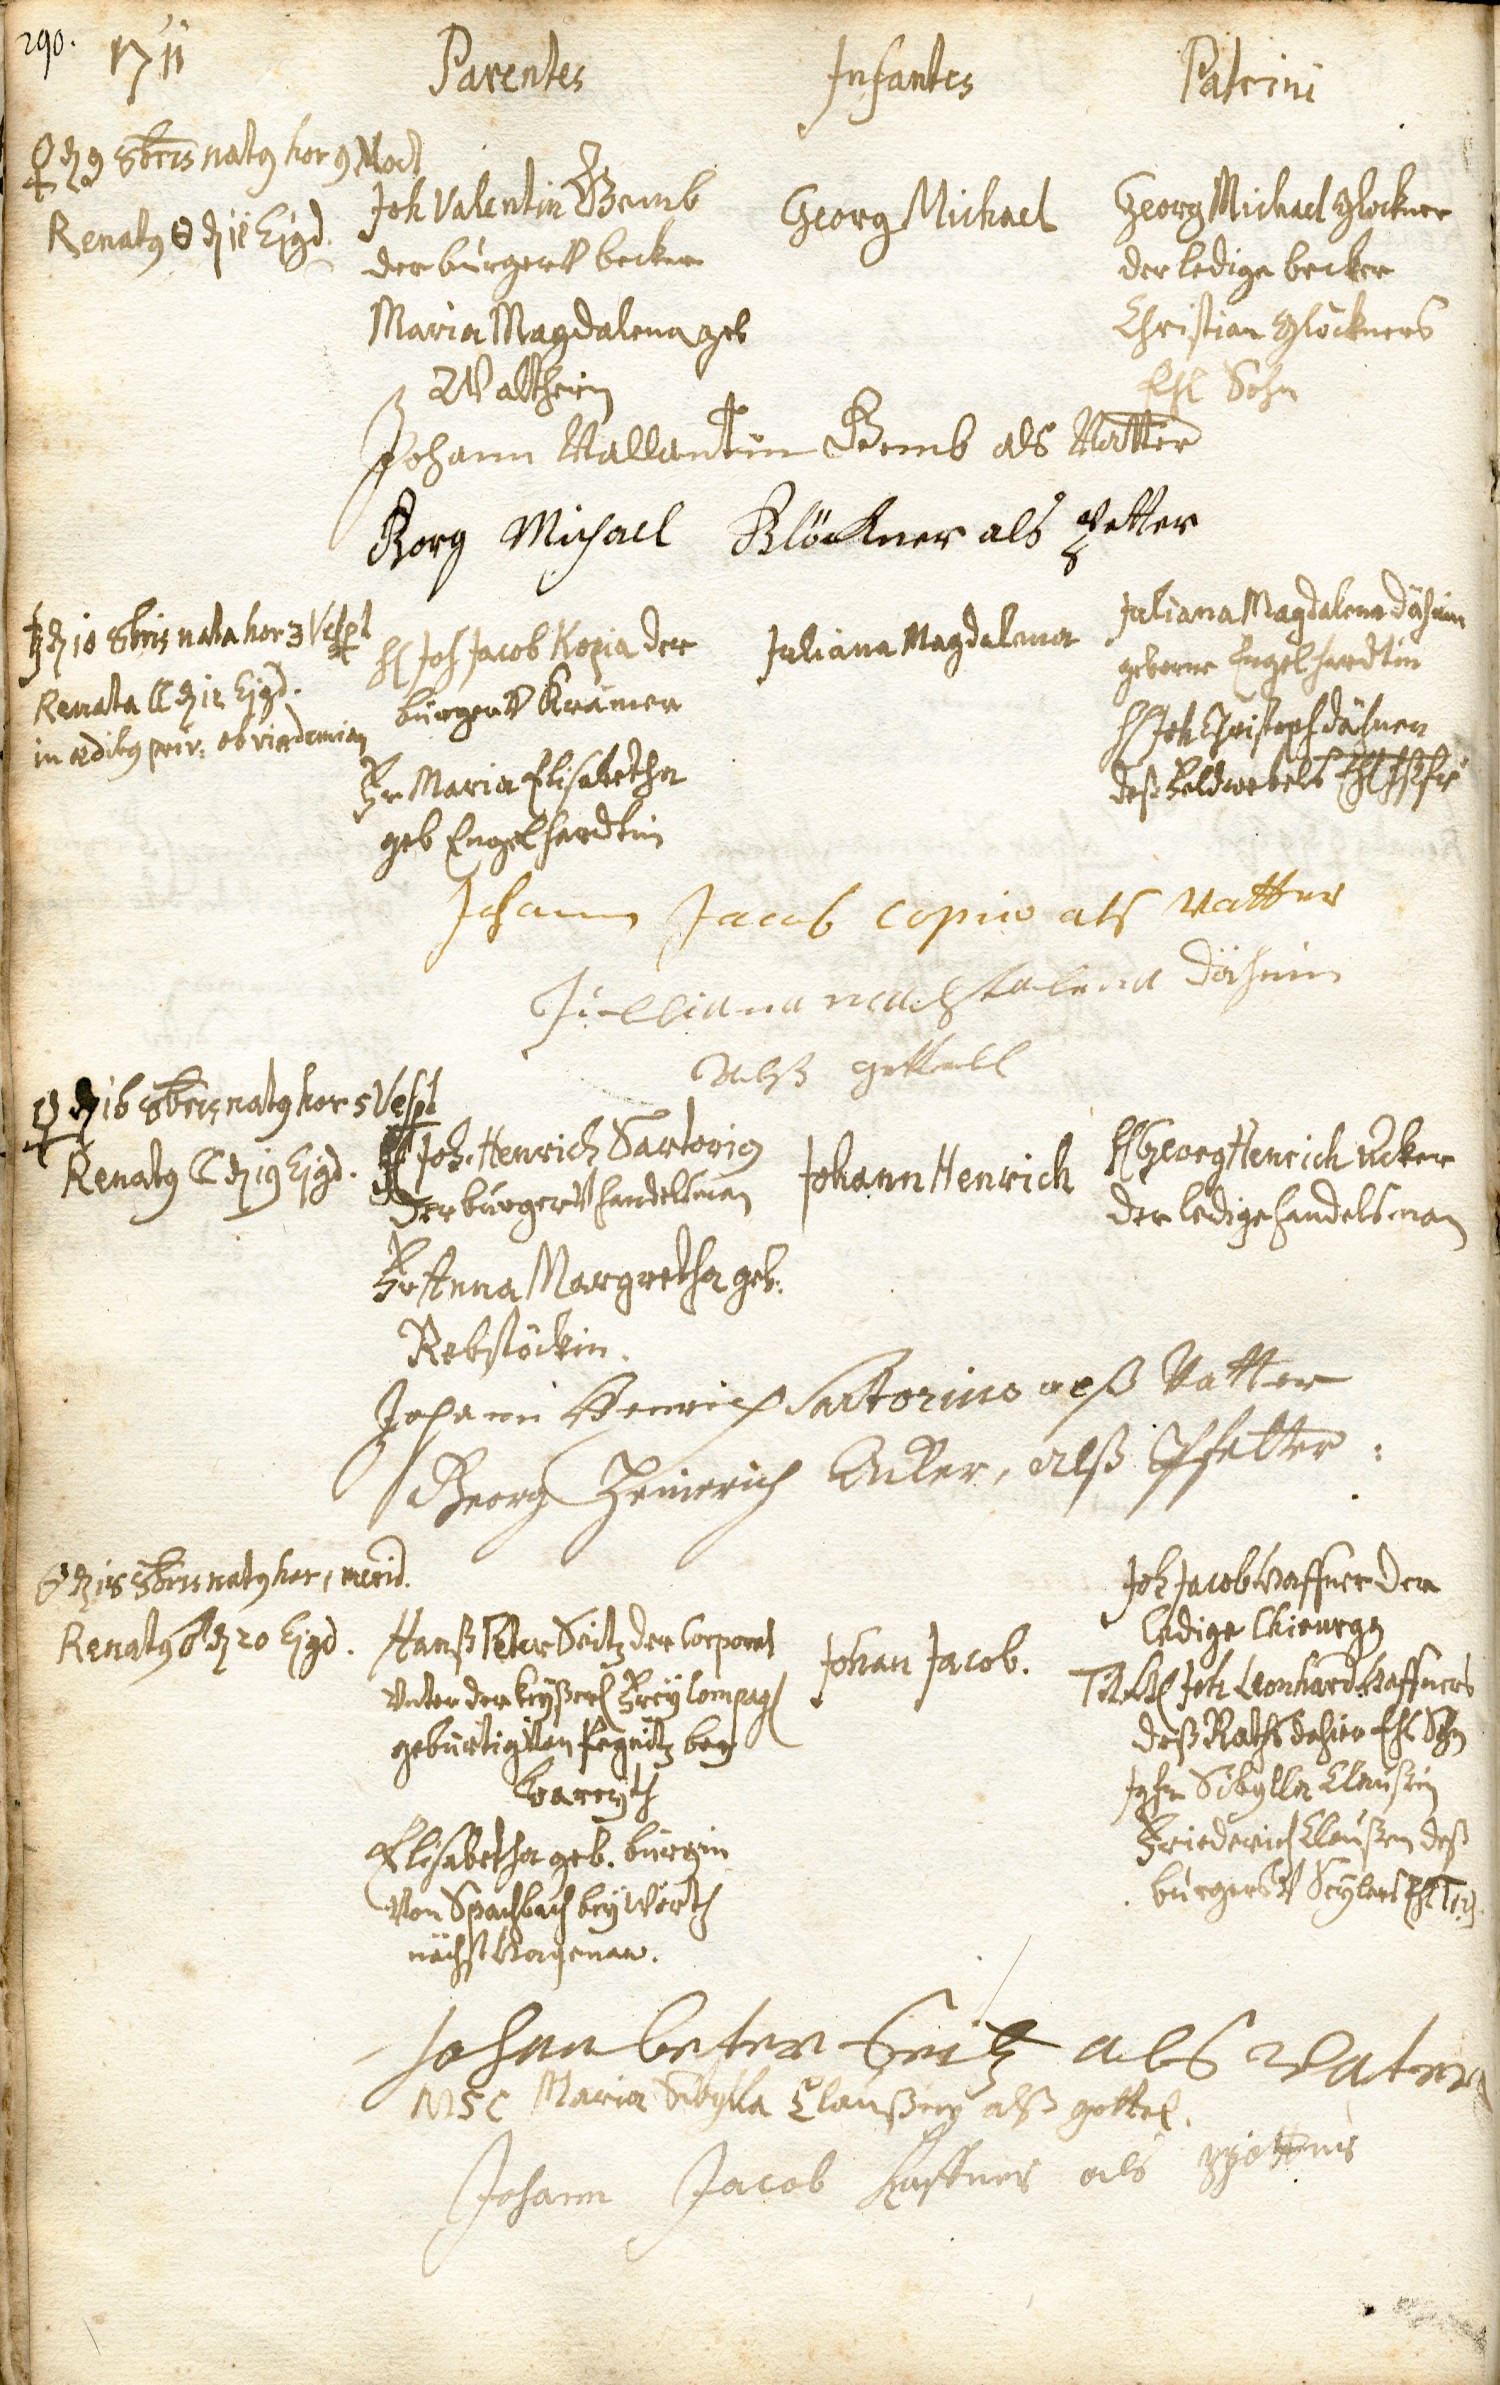 290.
1711
Parentes
Infantes
Patrini
♀ d 9 8bris natg hor 9 Noct
Renatg ☉ d 11 Ejgd.
Joh Valentin Bemb
der burger V becker
Maria Magdalena geb
Waltherin
Georg Michael
Georg Michael Glöckner
der ledige becker
Christian Glöckners
Ehl Sohn
Johann Vallantin Bemb als Vatter
Gorg Michael Glöckner als Petter
♄ d 10 8bris nata hor 3 Vesp
Renata ☾ d 12 Ejgd.
in ædibg priv: ob vindemian
H Joh Jacob Kopia der
burger V Krämer
Fr Maria Elisabetha
geb Engelhardtin
Juliana Magdalena
Juliana Magdalena Dähnin
geborne Engelhardtin
H Joh Christoph Dähnen
deß Feldwebels Ehl Haßfr
Johann Jacob Copia als Vatter
Juelliana Machtalena Dähnin
alß gettell
♀ d 16 8bris natg hor 5 Vesp
Renatg ☾ d 19 Ejgd.
H Joh. Henrich Sartorig
der burger V handelsman
Fr Anna Margretha geb.
Rebstöckin.
Johann Henrich
H Georg Henrich Ucker
der ledige handelsman
Johann Henrich Sartorius alß Vatter
Georg Heinrich Ucker, alß Pfetter:
d 18 8bris natg hor 1 merid.
Renatg ♂ d 20 Ejgd.
Hanß Peter Seitz der Corporal
Unter der Keyßerl Frey Compag
gebürtig Von Pegnitz bey
bareyth
Elisabetha geb. burgin
Von Spachbach bey Wörth
nächst Hagenaw.
Johan Jacob.
Joh Jacob Haffner der
ledige Chirurgg
Tit H Joh Leonhard Haffners
deß Raths dahier Ehl Sohn
Jgfr Sibylla Claußin
Friederich Claußen deß
burgers V Seylers Ehl Tocht
Johann beter Seitz als Vater
MSC Maria Sibylla Claußin alß gottel.
Johann Jacob Haffner als